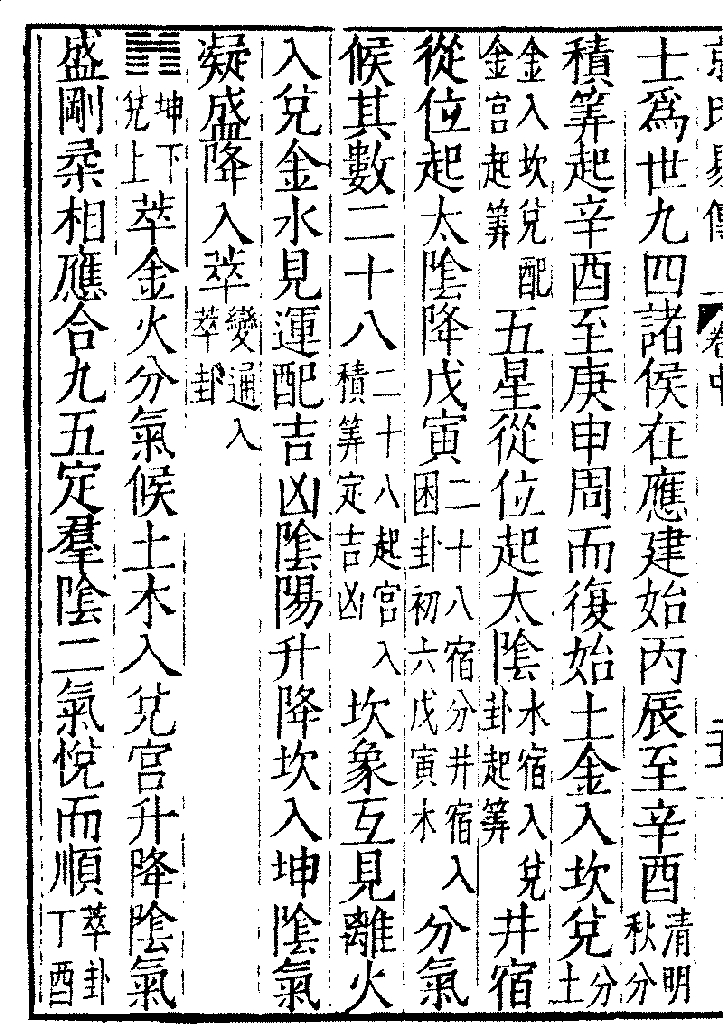 京氏易傳 卷中
士爲世九四諸侯在應建始丙辰至辛酉清明秋分
積筭起辛酉至庚申周而復始土金入坎兌分土
金入坎兌配金宮起筭五星從位起太陰水宿入兌卦起筭井宿
從位起太陰降戊寅二十八宿分井宿入困卦初六戊寅木分氣
候其數二十八二十八起宮入積筭定吉凶坎象互見離火
入兌金水見運配吉凶陰陽升降坎入坤陰氣
凝盛降入萃變通入萃卦
䷬坤下兌上萃金火分氣候土木入兌宮升降陰氣
盛剛柔相應合九五定羣陰二氣悅而順萃卦丁酉